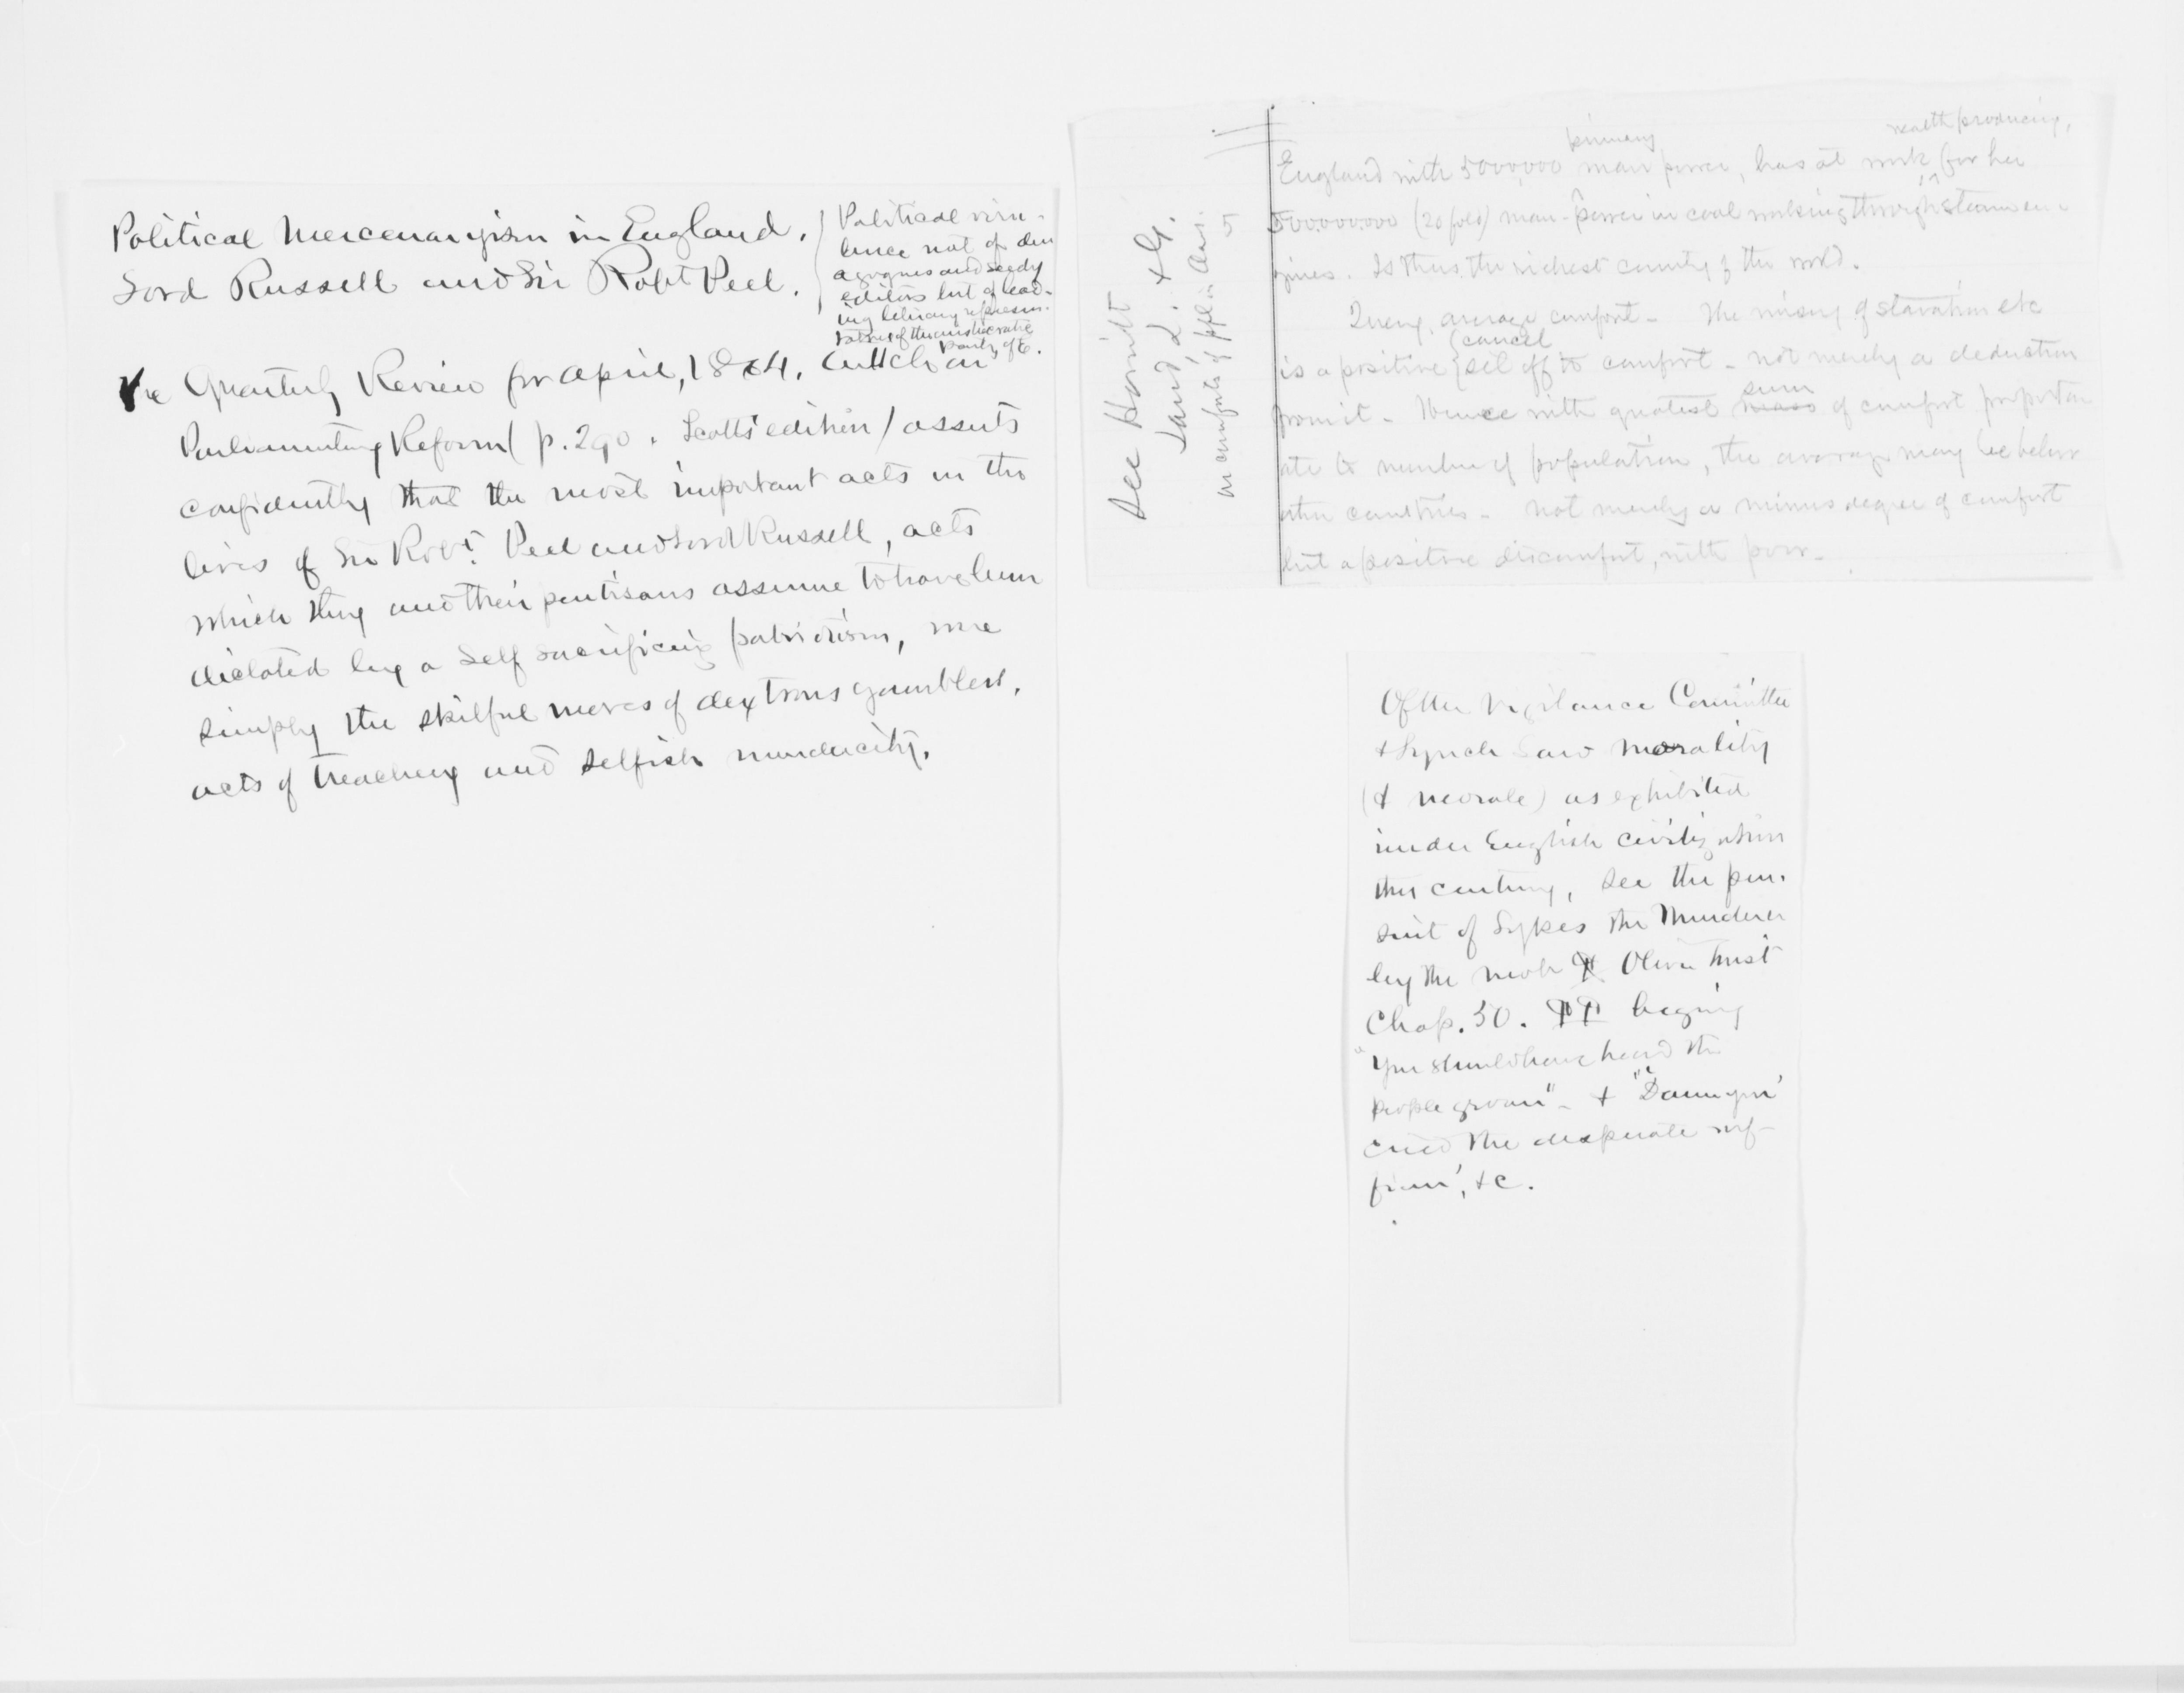 Political Mercenaryism in England.
Lord Russell and Sir Robt Peel.
Political viru-
lence not of dem
agogues and seedy
editors but of lead-
ing literary represen-
tatives of the aristocratic
party, of E.
The Quarterly Review for April, 1864. Article on
Parliamentary Reform (p. 290. Scott's edition) asserts
confidently that the most important acts in the
lives of Sir Robt. Peel and Lord Russell, acts
which they and their partisans assume to have been
dictated by a self sacrificing patriotism, were
simply the skilful moves of dextrous gamblers,
acts of treachery and selfish mendacity.
See Howitt
Land, L. & G.
on comforts of ppl in Aus.
5
primary
wealth producing,
England with 5000,000 man power, has at work for her
500,000,000 (20 fold) man-power in coal working through steam en-
gines. Is thus the richest country of the world.
Query, average comfort - The misery of starvation etc
cancel
is a positive set off to comfort - not merely a deduction
sum
from it - Hence with greatest mass of comfort proportion
ate to number of population, the average may be below
other countries - Not merely a minus degree of comfort
but a positive discomfort, with poor -
Of the Vigilance Committee
& Lynch Law morality
(& morale) as exhibited
under English civilization
this century, see the pur-
suit of Sykes the Murderer
by the mob Oliver Twist
Chap. 50. ¶¶ beging
"You should have heard the
people groan" - & "'Damn you'
cried the desperate ruf-
fian', &c.